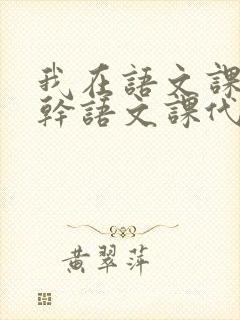 我在語文課
幹語文課代
黃翠萍